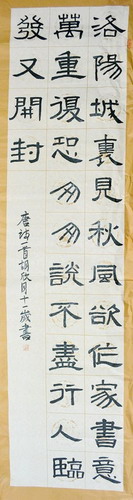 洛陽城裏見秋風欲作家書意
萬重復恐匆匆說不盡行人臨
發又開封
唐詩一首胡欣月十一歲書